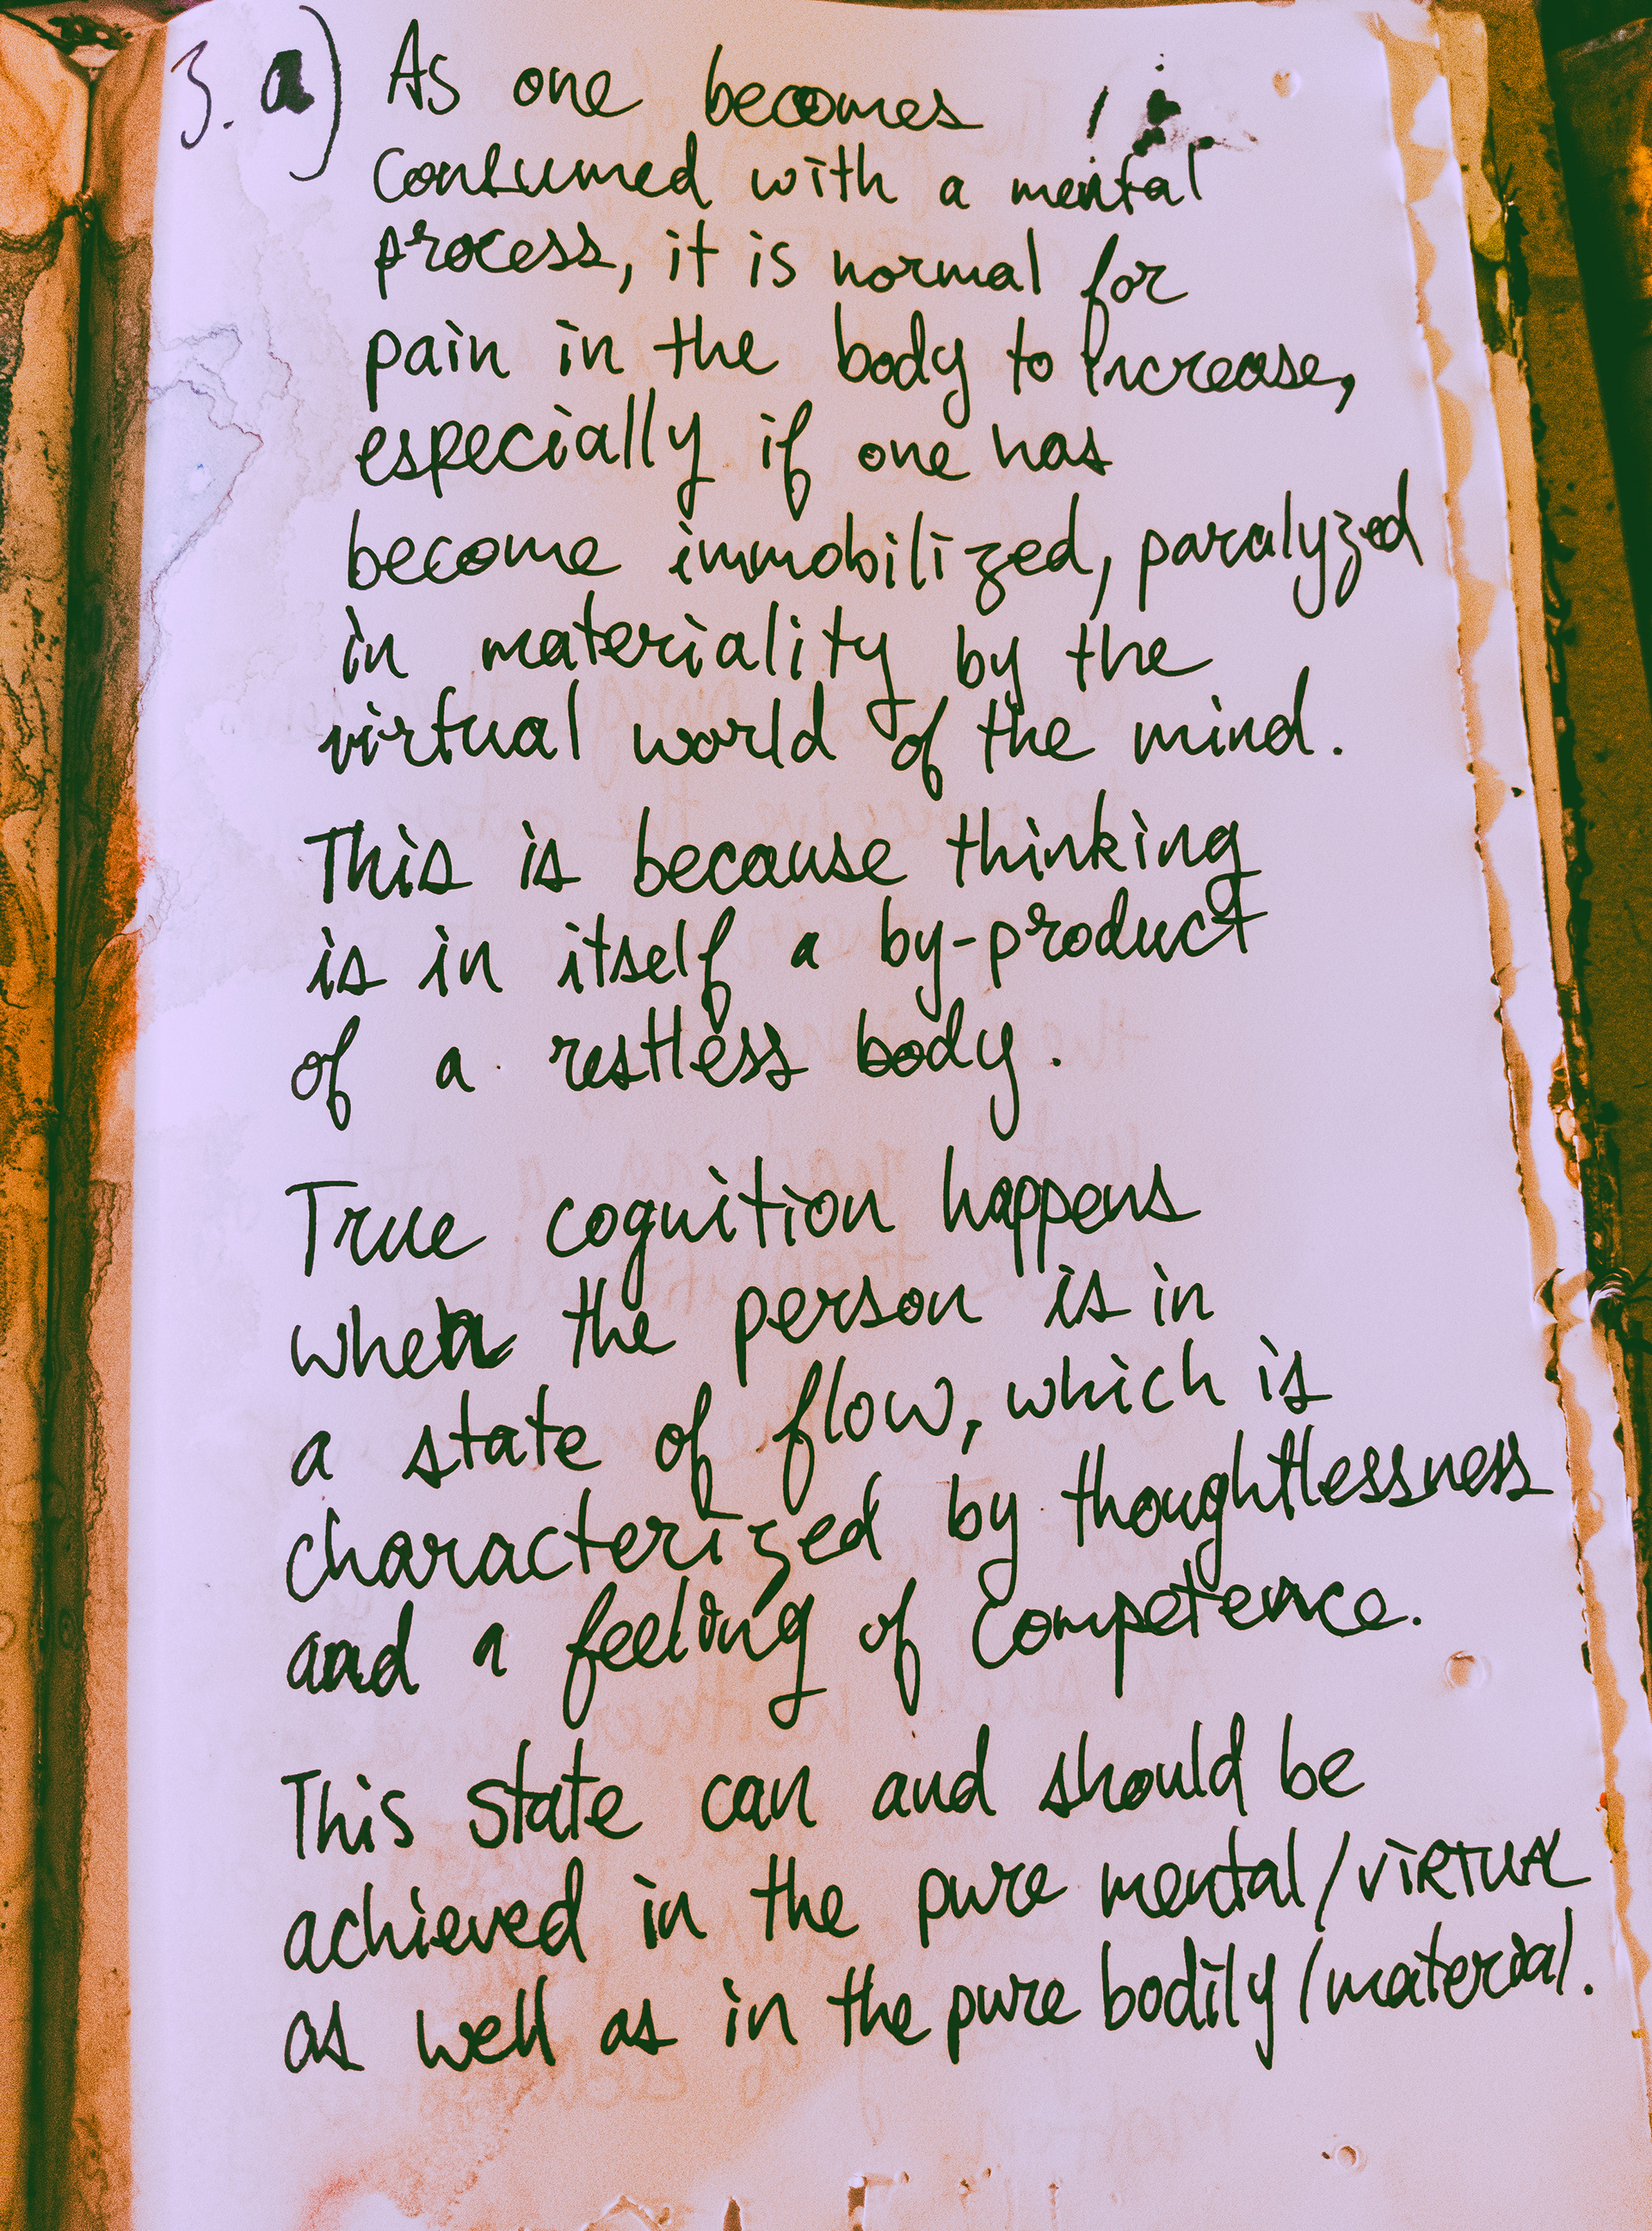 3. a) As one becomes
consumed with a mental
process, it is normal for
pain in the body to increase,
especially if one has
become immobilized, paralyzed
in materiality by the
virtual world of the mind.
This is because thinking
is in itself a by-product
of a restless body.
True cognition happens
when the person is in
a state of flow, which is
characterized by thoughtlessness
and a feeling of competence.
This state can and should be
achieved in the pure mental/VIRTUAL
as well as in the pure bodily/material.